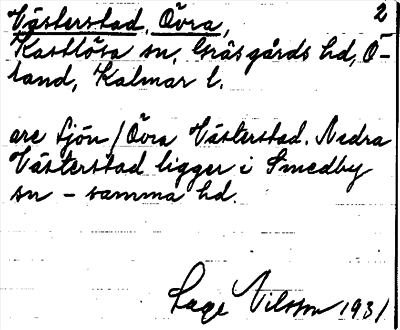 Västerstad, Övra, 2
Kastlösa sn, Gräsgårds hd, Ö-
land, Kalmar l.
arc Sjön / Övra Västerstad. Nedra
Västerstad ligger i Smedby
sn - samma hd.
Lage Nilsson 1931